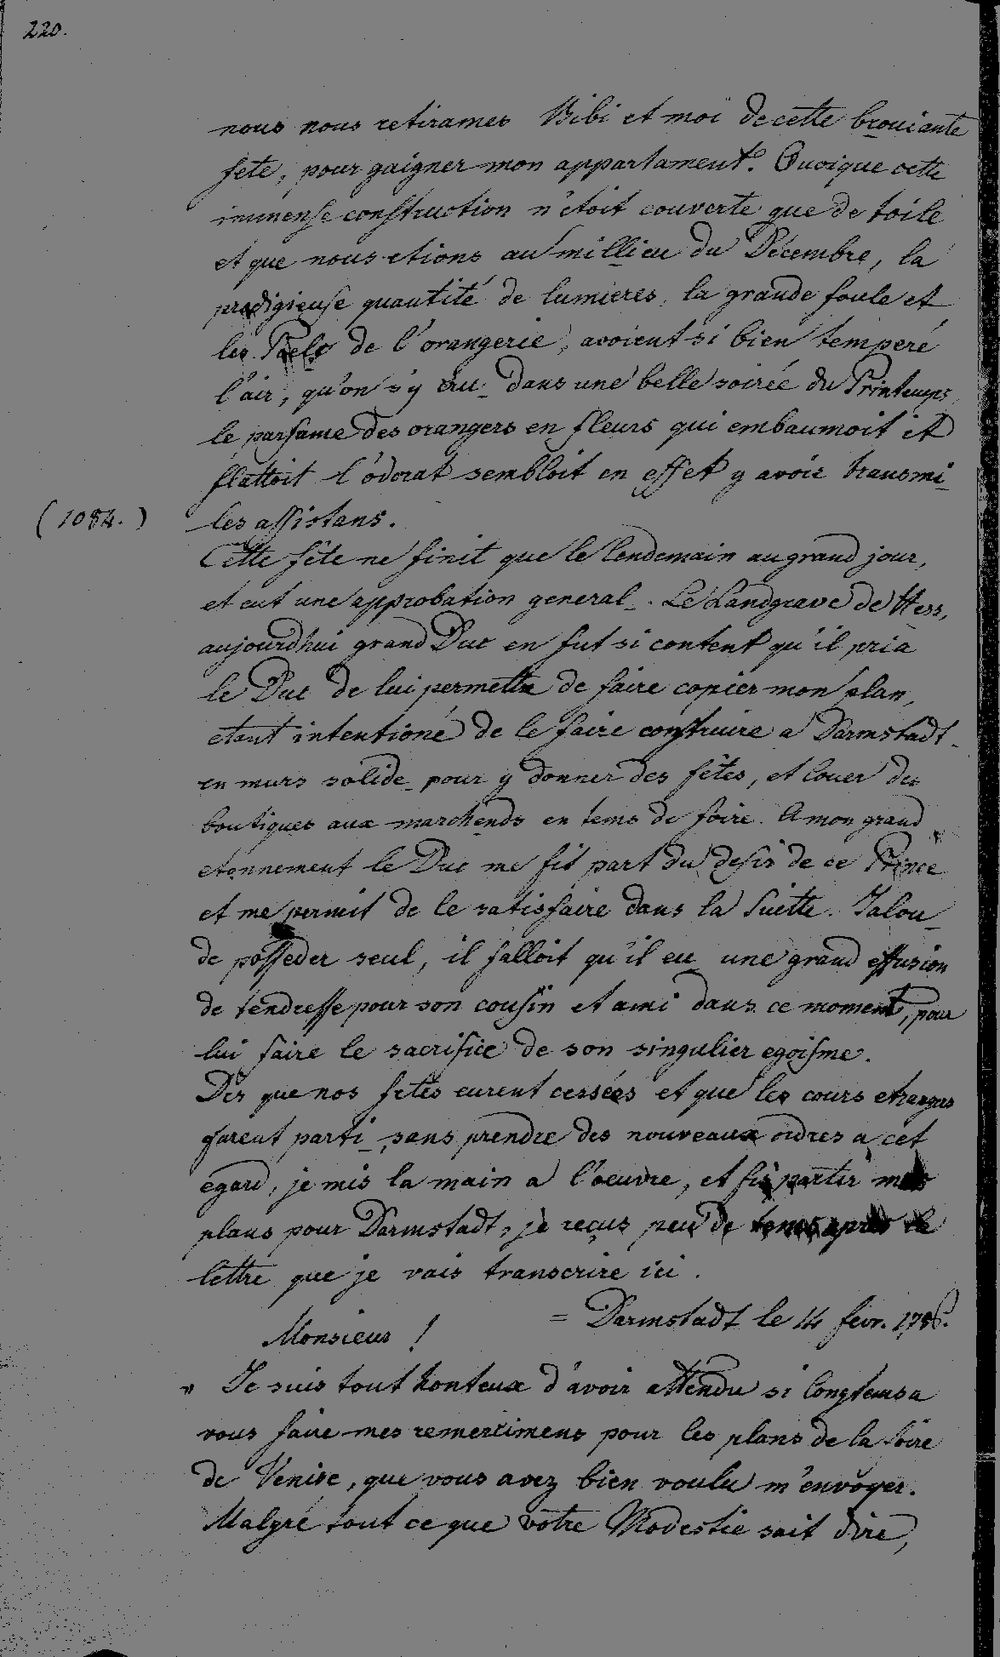 220.
nous nous retirames Bibi et moi de cette brouiante
fete, pour gaigner mon appartament. Quoique cette
immense construction n'étoit couverte que de toile
et que nous etions au millieu du Décembre, la
prodigieuse quantité de lumieres, la grande foule et
les Poels de l'orangerie, avoient si bien temperé
l'air, qu'on s'y cru dans une belle soirée du Printemps,
le parfume des orangers en fleurs qui embaumoit et
flattoit l'odorat sembloit en effet y avoir transmi
(1084.) les assistans.
Cette fête ne finit que le lendemain au grand jour,
et eut une approbation general. Le Landgrave de Hess,
aujourdhui grand Duc en fut si content qu'il pria
le Duc de lui permettre de faire copier mon plan,
etant intentioné de le faire construire a Darmstadt
en murs solide pour y donner des fêtes, et louer des
boutiques aux marchends en tems de foire. A mon grand
etonnement le Duc me fit part du desir de ce Prince
et me permit de le satisfaire dans la suitte. Jalou
de posseder seul, il falloit qu'il eu une grand effusion
de tendresse pour son cousin et ami dans ce moment, pour
lui faire le sacrifice de son singulier egoisme.
Dès que nos fetes eurent cessées et que les cours etranges
furent parti sans prendre des nouveaux ordres a cet
egard, je mis la main a l'oeuvre, et fis partir mes
plans pour Darmstadt, je reçus peu de tems après la
lettre que je vais transcrire ici.
= Darmstadt le 14 fevr. 1786.
Monsieur !
" Je suis tout honteux d'avoir attendu si longtems a
vous faire mes remercimens pour les plans de la foire
de Venise, que vous avez bien voulu m'envoyer.
Malgré tout ce que votre Modestie sait dire,